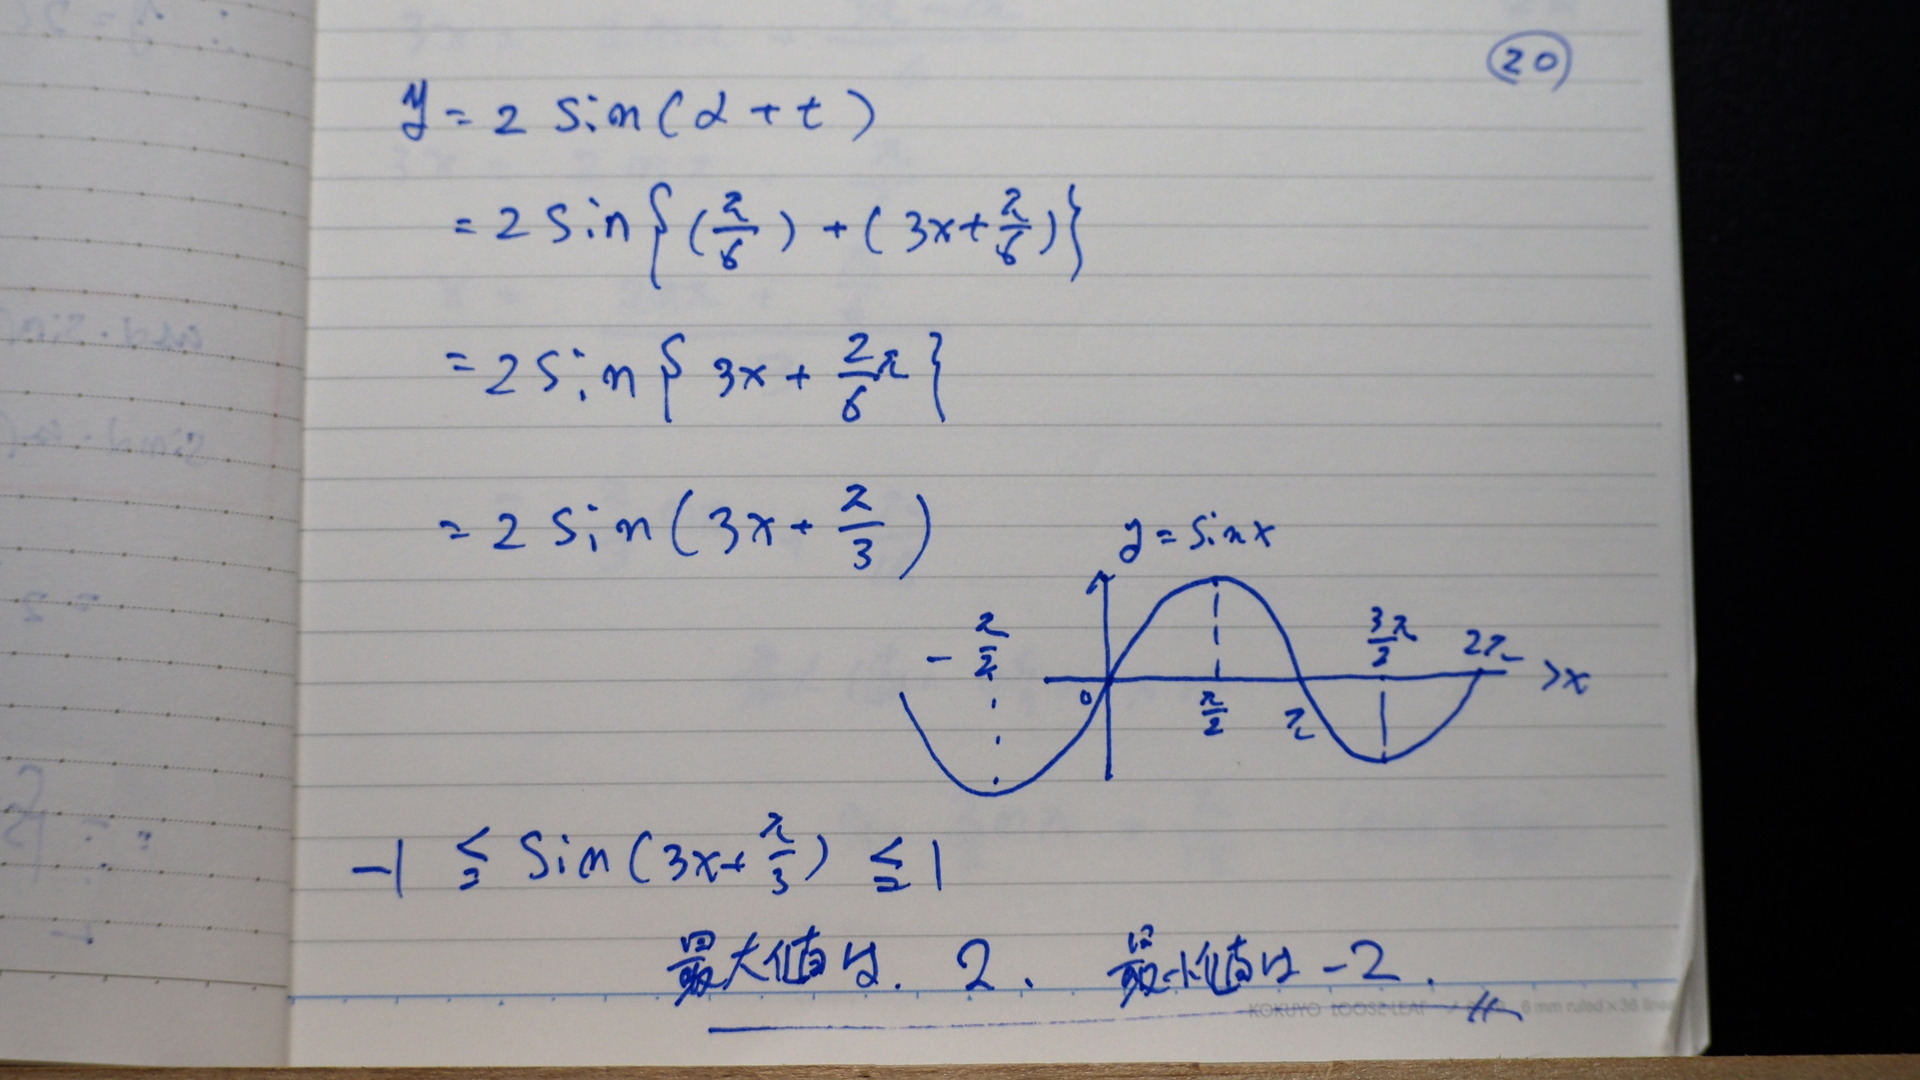 20
y = 2 sin(α + t)
= 2 sin{(π/6) + (3x + π/6)}
= 2 sin{3x + 2/6 π}
= 2 sin(3x + π/3)
y = sin x
-π/2 3π/2 2π
0 π/2 π >x
-1 ≦ sin(3x + π/3) ≦ 1
最大値は. 2. 最小値は -2.
KOKUYO LOOSE-LEAF 6 mm ruled × 36 lines